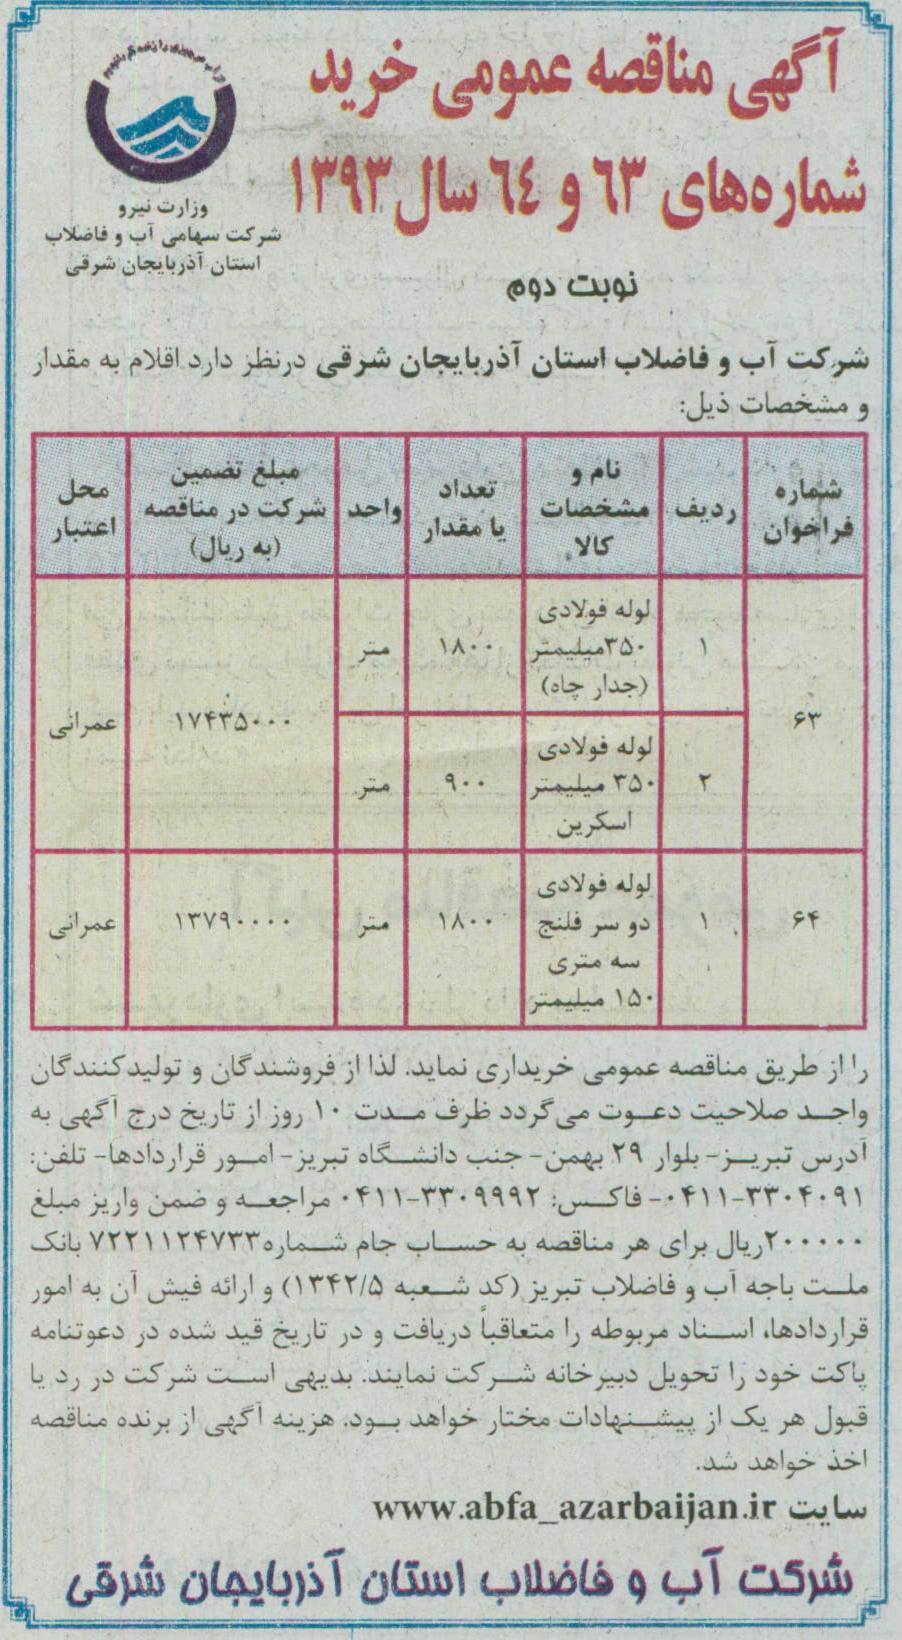 آگهی مناقصه عمومی خرید
شماره‌های ٦٣ و ٦٤ سال ١٣٩٣
نوبت دوم
وزارت نیرو
شرکت سهامی آب و فاضلاب
استان آذربایجان شرقی
شرکت آب و فاضلاب استان آذربایجان شرقی درنظر دارد اقلام به مقدار
و مشخصات ذیل:
شماره فراخوان | ردیف | نام و مشخصات کالا | تعداد یا مقدار | واحد | مبلغ تضمین شرکت در مناقصه (به ریال) | محل اعتبار
۶۳ | ۱ | لوله فولادی ۳۵۰میلیمتر (جدار چاه) | ۱۸۰۰ | متر | ۱۷۴۳۵۰۰۰ | عمرانی
۲ | لوله فولادی ۳۵۰ میلیمتر اسکرین | ۹۰۰ | متر
۶۴ | ۱ | لوله فولادی دو سر فلنج سه متری ۱۵۰ میلیمتر | ۱۸۰۰ | متر | ۱۳۷۹۰۰۰۰ | عمرانی
را از طریق مناقصه عمومی خریداری نماید. لذا از فروشندگان و تولیدکنندگان
واجد صلاحیت دعوت می‌گردد ظرف مدت ۱۰ روز از تاریخ درج آگهی به
آدرس تبریز- بلوار ۲۹ بهمن- جنب دانشگاه تبریز- امور قراردادها- تلفن:
۰۴۱۱-۳۳۰۴۰۹۱- فاکس: ۰۴۱۱-۳۳۰۹۹۹۲ مراجعه و ضمن واریز مبلغ
۲۰۰۰۰۰ریال برای هر مناقصه به حساب جام شماره۷۲۲۱۱۲۴۷۳۳ بانک
ملت باجه آب و فاضلاب تبریز (کد شعبه ۱۳۴۲/۵) و ارائه فیش آن به امور
قراردادها، اسناد مربوطه را متعاقباً دریافت و در تاریخ قید شده در دعوتنامه
پاکت خود را تحویل دبیرخانه شرکت نمایند. بدیهی است شرکت در رد یا
قبول هر یک از پیشنهادات مختار خواهد بود. هزینه آگهی از برنده مناقصه
اخذ خواهد شد.
سایت www.abfa_azarbaijan.ir
شرکت آب و فاضلاب استان آذربایجان شرقی